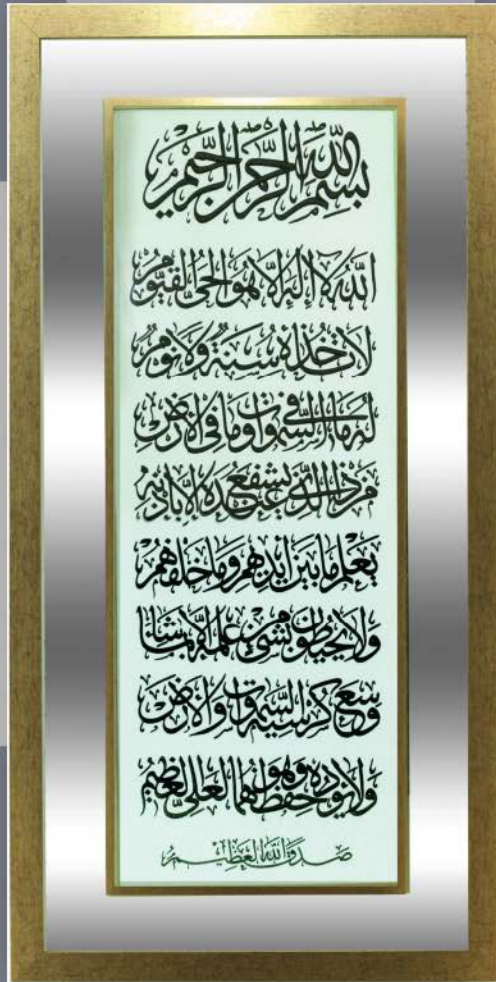 بسم الله الرحمن الرحيم
الله لا إله إلا هو الحي القيوم
لا تأخذه سنة ولا نوم
له ما في السموات وما في الأرض
من ذا الذي يشفع عنده إلا بإذنه
يعلم ما بين أيديهم وما خلفهم
ولا يحيطون بشيء من علمه إلا بما شاء
وسع كرسيه السموات والأرض
ولا يؤده حفظهما وهو العلي العظيم
صدق الله العظيم